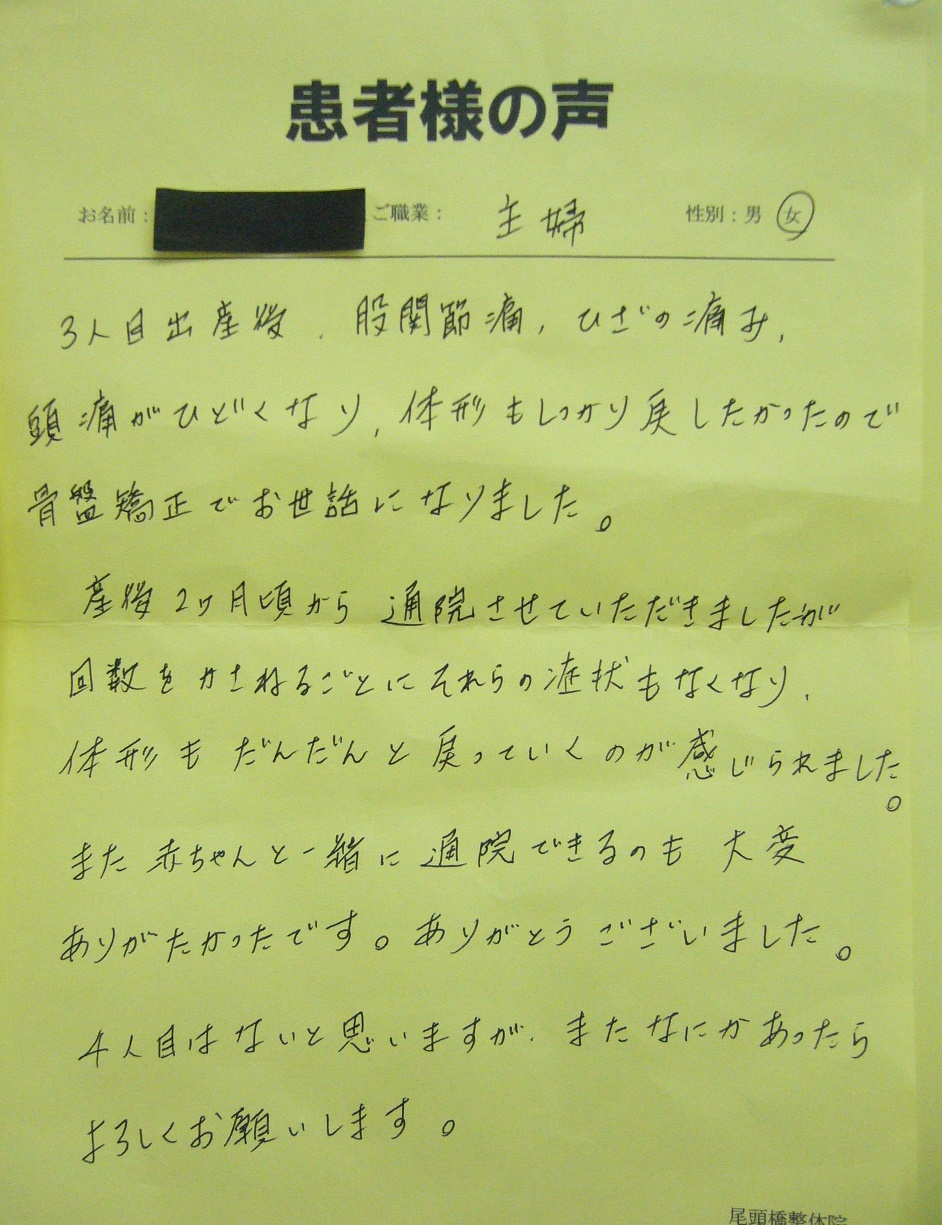 患者様の声
お名前： ご職業： 主婦 性別：男 女
3人目出産後、股関節痛、ひざの痛み、
頭痛がひどくなり、体形もしっかり戻したかったので
骨盤矯正でお世話になりました。
産後2ヶ月頃から通院させていただきましたが
回数をかさねるごとにそれらの症状もなくなり、
体形もだんだんと戻っていくのが感じられました。
また赤ちゃんと一緒に通院できるのも大変
ありがたかったです。ありがとうございました。
4人目はないと思いますが、またなにかあったら
よろしくお願いします。
尾頭橋整体院